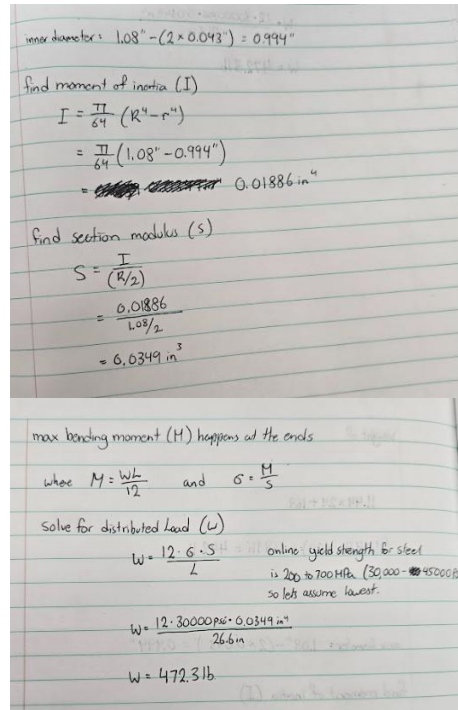 inner diameter: 1.08" - (2 × 0.043") = 0.994"
find moment of inertia (I)
I = π/64 (R⁴ - r⁴)
= π/64 (1.08" - 0.994")
= 0.01886 in⁴
find section modulus (s)
S = I/(R/2)
= 0.01886/1.08/2
= 0.0349 in³
max bending moment (M) happens at the ends
where M = WL/12 and σ = M/S
solve for distributed load (W)
W = 12·σ·S/L
online yield strength for steel
is 200 to 700 MPa (30,000 - 45000 P
so lets assume lowest.
W = 12·30000 psi·0.0349 in⁴/26.6in
W = 472.3 lb